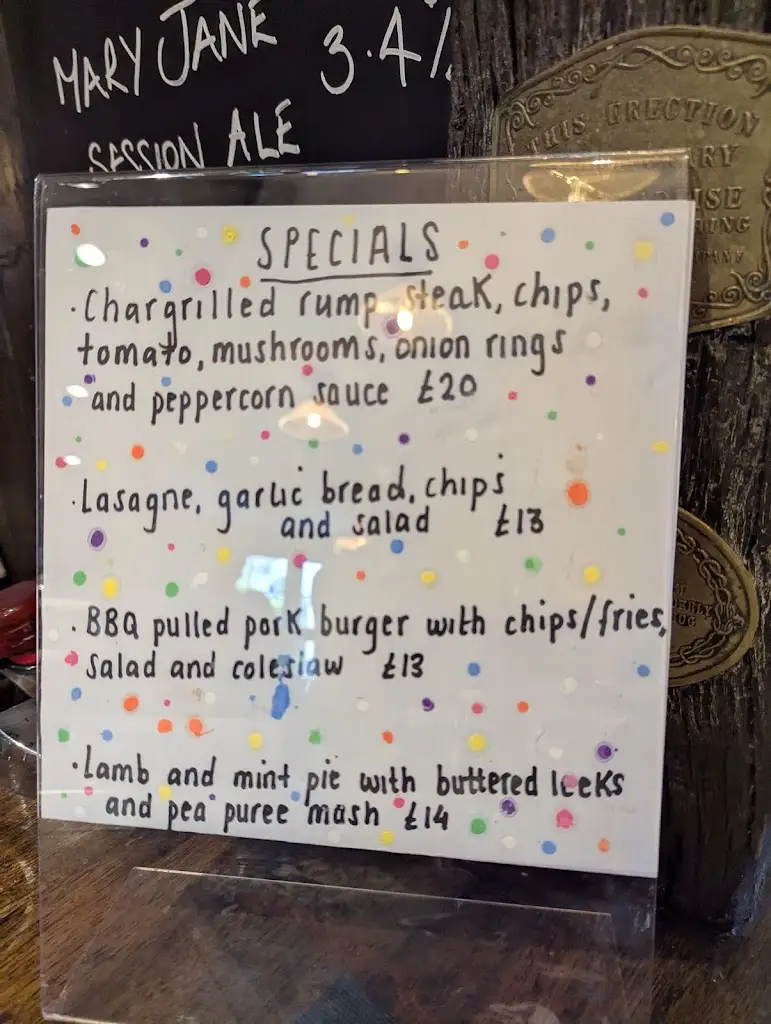 MARY JANE 3.4%
SESSION ALE
THIS ERECTION
SPECIALS
·Chargrilled rump steak, chips,
tomato, mushrooms, onion rings
and peppercorn sauce £20
·Lasagne, garlic bread, chips
and salad £13
·BBQ pulled pork burger with chips/fries,
salad and coleslaw £13
·Lamb and mint pie with buttered leeks
and pea puree mash £14